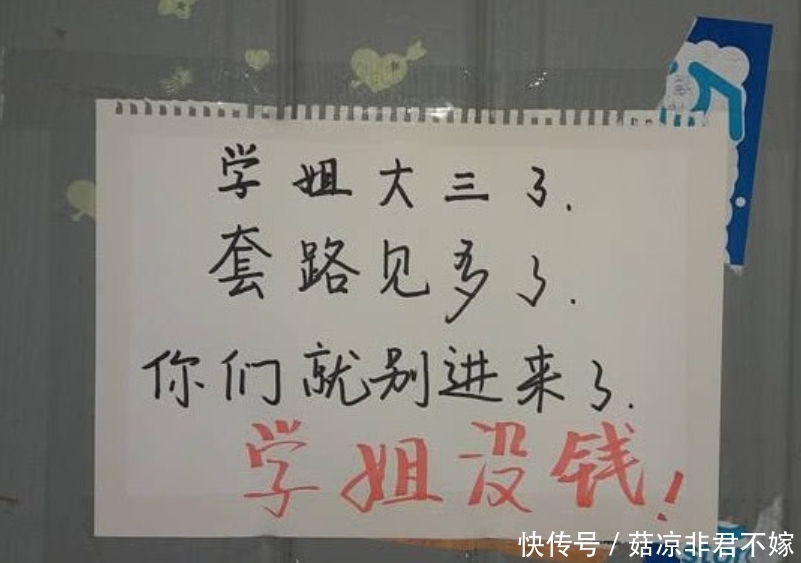 学姐大三了.
套路见多了.
你们就别进来了.
学姐没钱!
快传号/菇凉非君不嫁